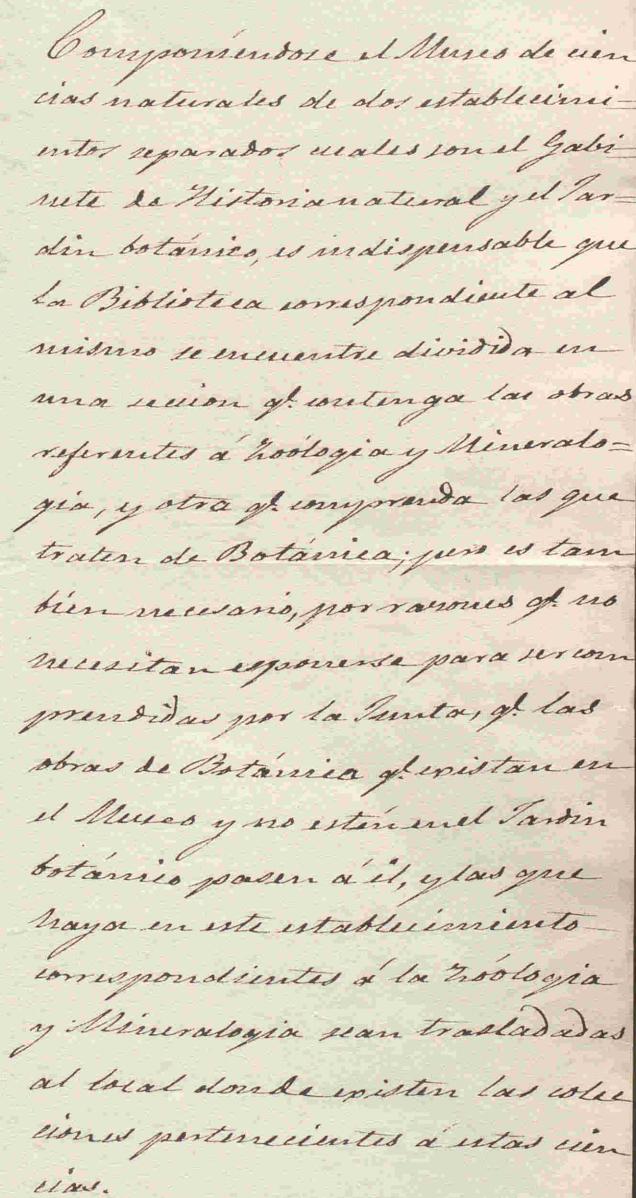 Componiendose el Museo de cien
cias naturales de dos establecimi-
entos separados cuales son el Gabi=
nete de Historia natural y el Jar=
din botánico, es indispensable que
la Biblioteca correspondiente al
mismo se encuentre dividida en
una seccion q.e contenga las obras
referentes á Zoólogia y Mineralo=
gia, y otra q.e comprenda las que
traten de Botánica; pero es tam
bien necesario, por razones q.e no
necesitan esponerse para ser com
prendidas por la Junta, q.e las
obras de Botánica q.e existan en
el Museo y no estén en el Jardin
botánico pasen á él, y las que
haya en este establecimiento
correspondientes á la Zoólogia
y Mineralogia sean trasladadas
al local donde existen las colec
ciones pertenecientes á estas cien
cias.